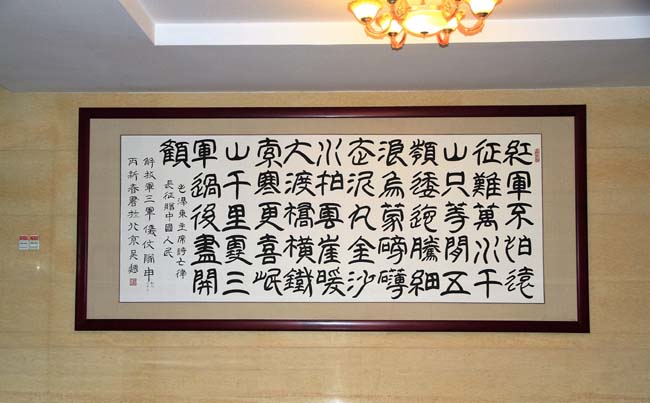 紅軍不怕遠
征難萬水千
山只等閒五
嶺逶迤騰細
浪烏蒙磅礴
走泥丸金沙
水拍雲崖暖
大渡橋橫鐵
索寒更喜岷
山千里雪三
軍過後盡開
顏
毛澤東主席詩七律
長征贈中國人民
解放軍三軍儀仗隊申
丙新春書於北京吳